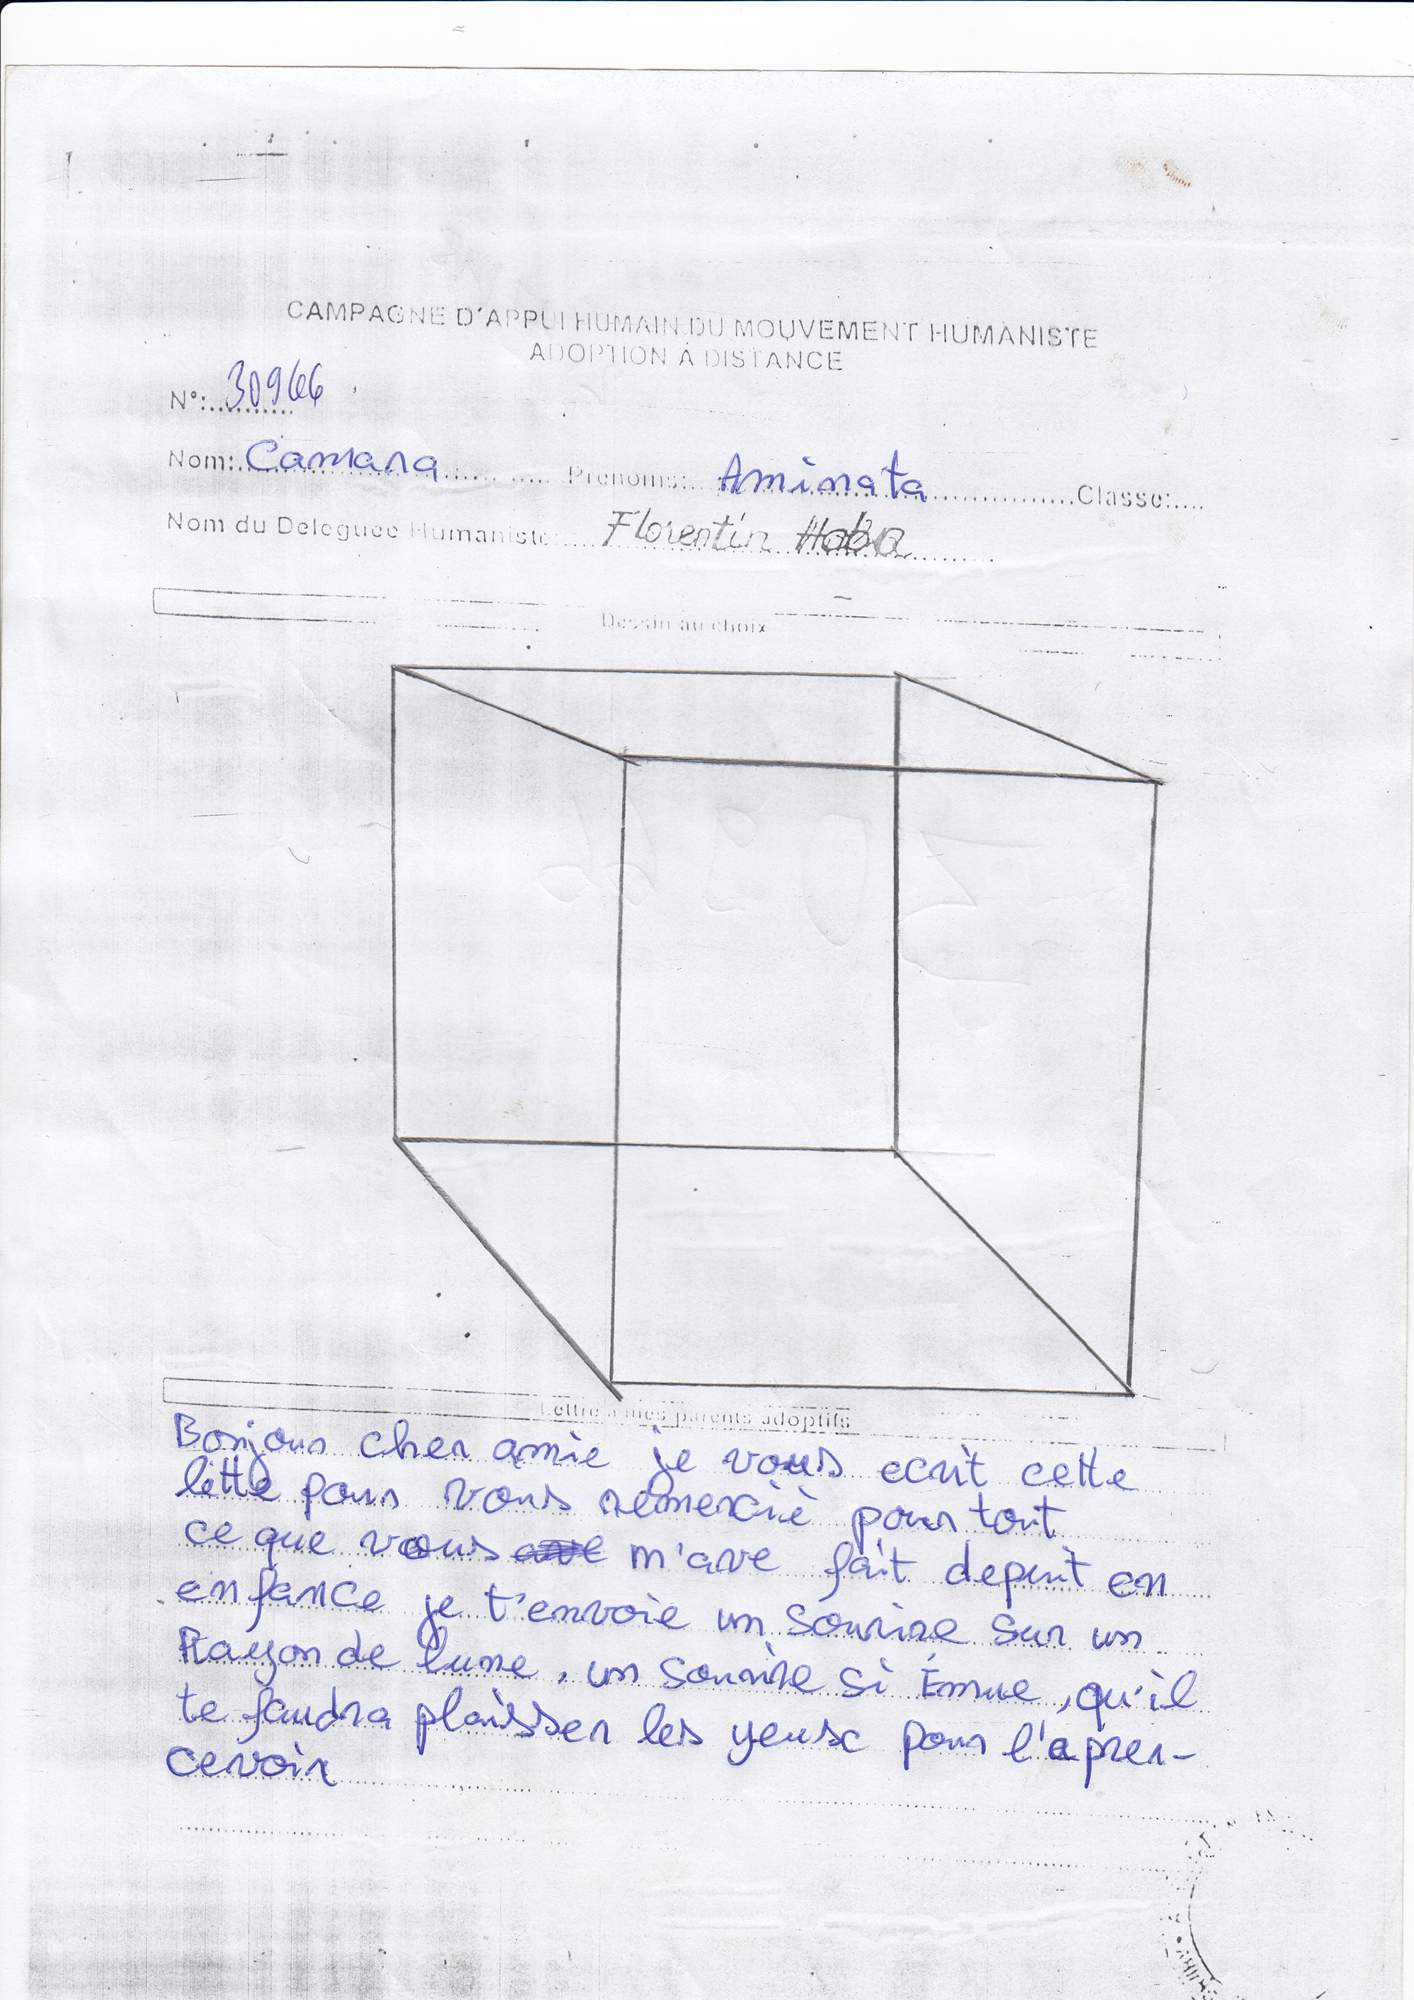 CAMPAGNE D'APPUI HUMAIN DU MOUVEMENT HUMANISTE
ADOPTION A DISTANCE
N°: 30966
Nom: Camara Prénoms: Aminata Classe:
Nom du Déléguée Humaniste: Florentin Haba
Dessin au choix
Lettre à mes parents adoptifs
Bonjour cher amie je vous ecrit cette
lette pour vous remerciè pour tout
ce que vous m'ave fait depuit en
enfance je t'envoie un sourire sur un
Rayon de lune, un sourire si Émue, qu'il
te faudra plaisser les yeux pour l'aprer-
cevoir